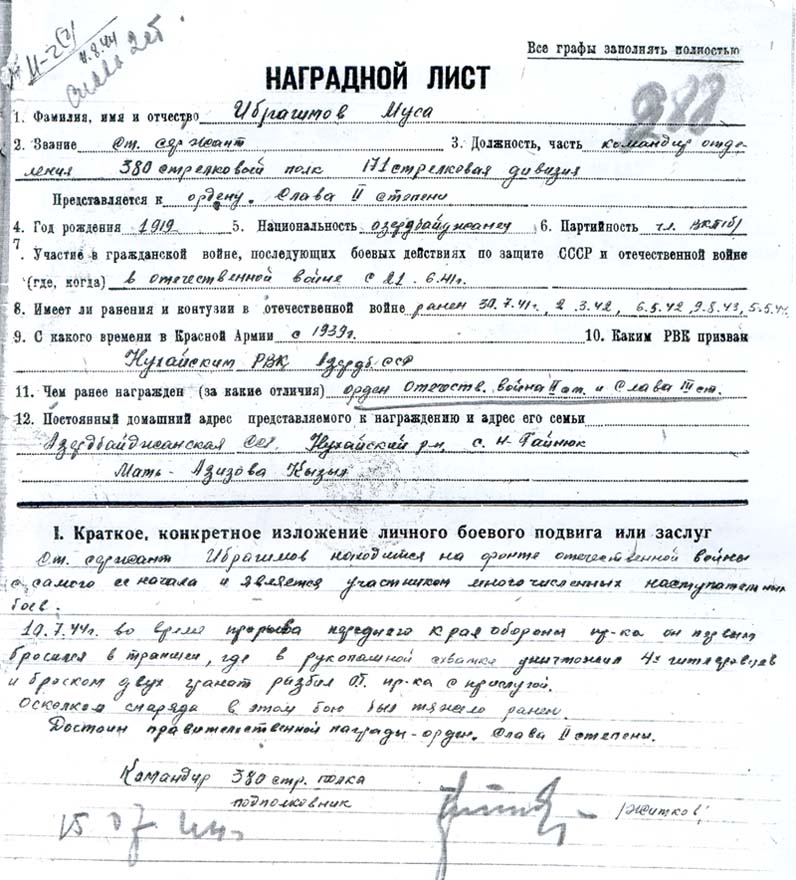 11-2(2)
4.8.44
Слава 2ст
Все графы заполнять полностью
НАГРАДНОЙ ЛИСТ
288
1. Фамилия, имя и отчество Ибрагимов Муса
2. Звание Ст. сержант 3. Должность, часть командир отде-
ления 380 стрелковый полк 171 стрелковая дивизия
Представляется к ордену. Слава II степени
4. Год рождения 1919 5. Национальность азербайджанец 6. Партийность чл. ВКП(б)
7. Участие в гражданской войне, последующих боевых действиях по защите СССР и отечественной войне
(где, когда) в отечественной войне с 21. 6.41г.
8. Имеет ли ранения и контузии в отечественной войне ранен 30.7.41г., 2.3.42, 6.5.42, 9.8.43, 5.5.44
9. С какого времени в Красной Армии с 1939г. 10. Каким РВК призван
Нухайским РВК Азерб. ССР
11. Чем ранее награжден (за какие отличия) орден Отечеств. война II ст. и Слава III ст.
12. Постоянный домашний адрес представляемого к награждению и адрес его семьи
Азербайджанская ССР. Нухайский р-н, с. Н-Гайнюк
Мать - Азизова Кызыл
I. Краткое, конкретное изложение личного боевого подвига или заслуг
Ст. сержант Ибрагимов находится на фронте отечественной войны
с самого ее начала и является участником многочисленных наступательных
боев.
10.7.44г. во время прорыва переднего края обороны пр-ка он первым
бросился в траншеи, где в рукопашной схватке уничтожил 4х гитлеровцев
и броском двух гранат разбил ОТ. пр-ка с прислугой.
Осколком снаряда в этом бою был тяжело ранен.
Достоин правительственной награды - орден. Слава II степени.
Командир 380 стр. полка
подполковник /Житков/
15 07. 44г.